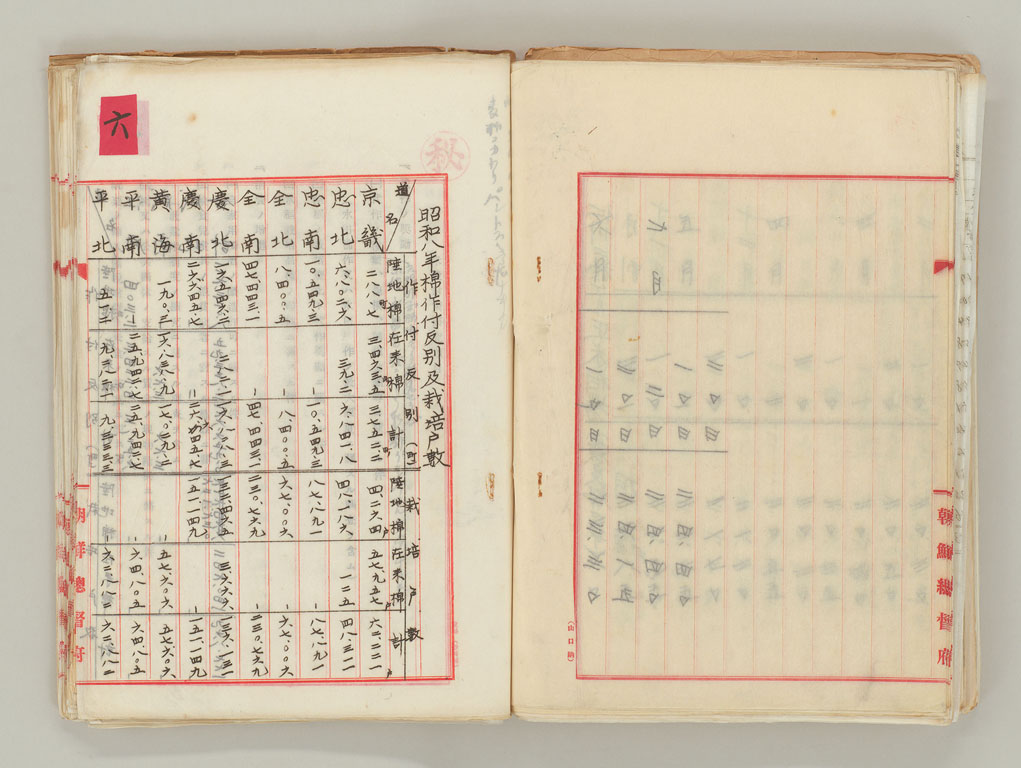 六
秘
昭和八年棉作付反別及栽培戸數
道名
作付反別(町) 栽培戸數
陸地棉 在来棉 計 陸地棉 在来棉 計
京畿 二八八.七町 三,四六三.五町 三,七五二.二町 四,二六四戸 五七,九五七戸 六二,二二一戸
忠北 六,八〇二.六 三九.二 六,八四一.八 四八,一八六 一二五 四八,三一一
忠南 一〇,五四九.三 — 一〇,五四九.三 八七,八九一 — 八七,八九一
全北 八,四〇〇.五 — 八,四〇〇.五 六七,〇〇六 — 六七,〇〇六
全南 四七,四四三.一 — 四七,四四三.一 二三〇,七六九 — 二三〇,七六九
慶北 一六,八〇八.三 一三二,四六五 三,六六六 一三六,一三一
慶南 二六,六四五.七 — 二六,六四五.七 一五一,一四九 — 一五一,一四九
黃海 一九〇.三 一六,八三八.九 一七,〇二九.二 — 五七,六〇六 五七,六〇六
平南 — 二五,九四二.七 二五,九四二.七 — 六四,八〇五 六四,八〇五
平北 五一.二 九,二八二.一 九,三三三.三 — 六二,八八二 六二,八八二
朝鮮總督府
朝鮮總督府